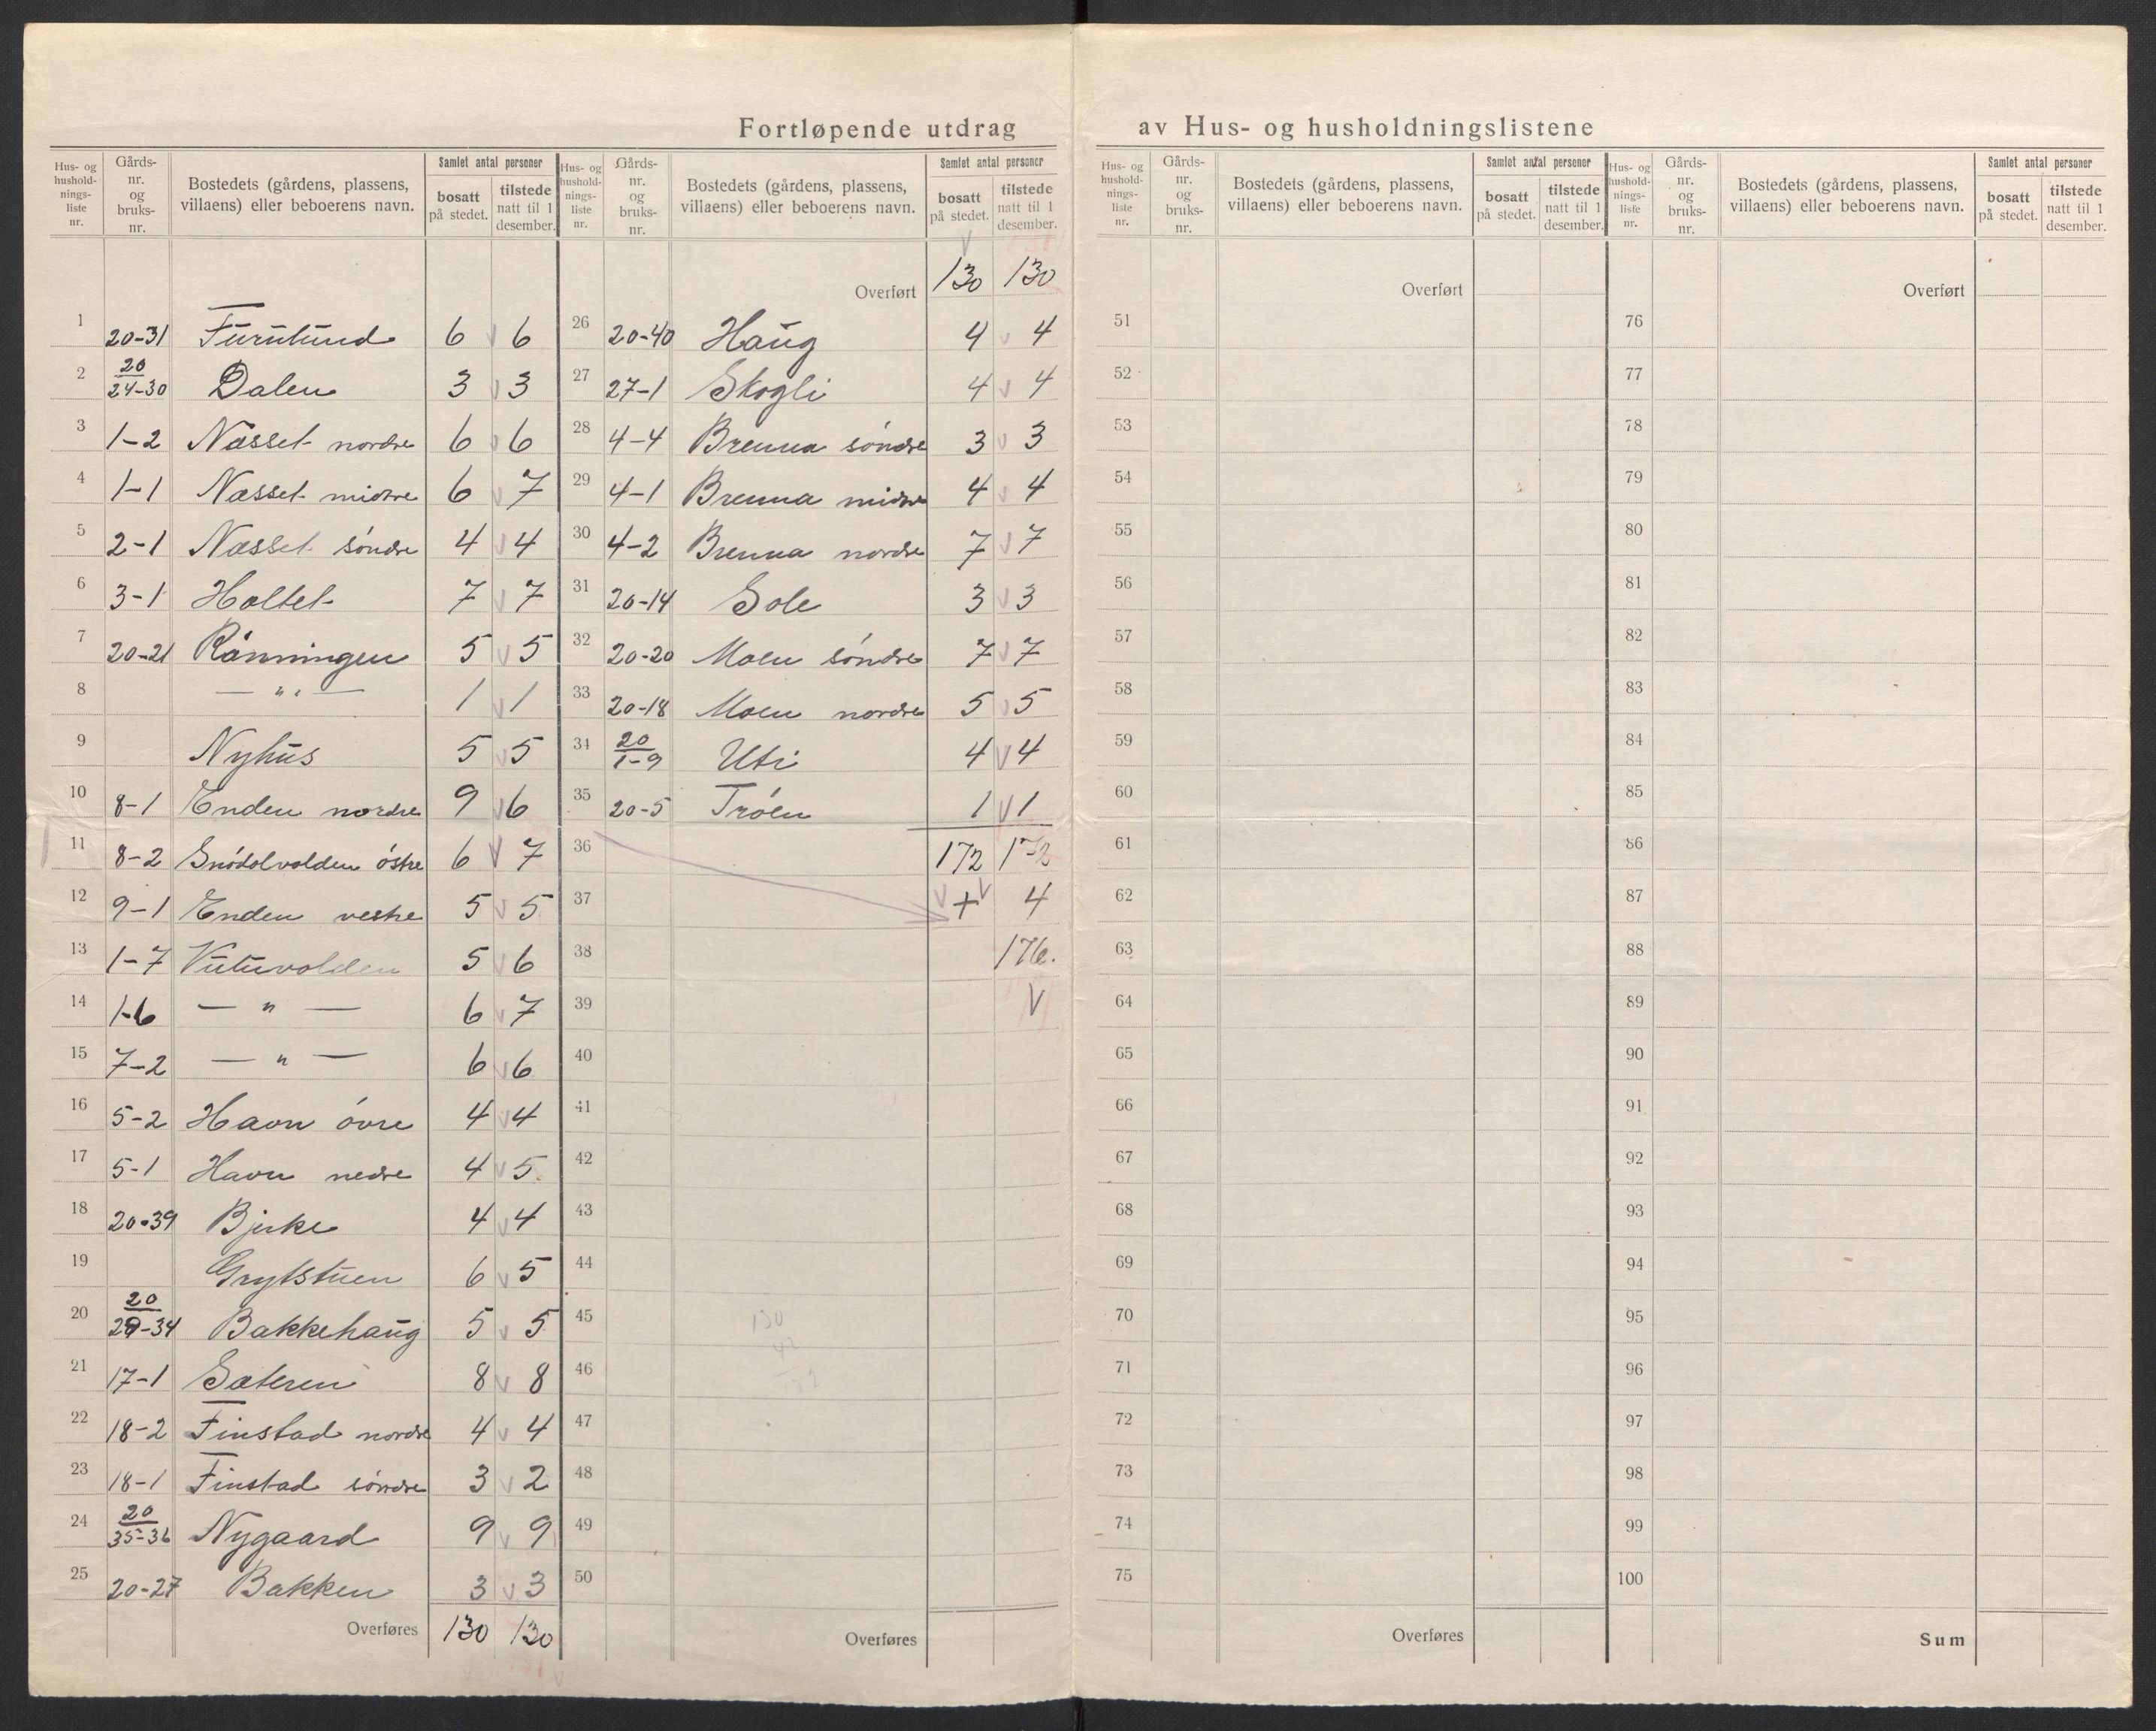 Fortløpende utdrag av Hus- og husholdningslistene
Hus- og hushold-nings-liste nr. | Gårds-nr. og bruks-nr. | Bostedets (gårdens, plassens, villaens) eller beboerens navn. | Samlet antal personer | bosatt på stedet. | tilstede natt til 1 desember.
1 20-31 Furulund 6 v 6
2 20/24-30 Dalen 3 v 3
3 1-2 Næsset nordre 6 v 6
4 1-1 Næsset midtre 6 v 7
5 2-1 Næsset søndre 4 v 4
6 3-1 Holtet 7 v 7
7 20-21 Rønningen 5 v 5
8 — " — 1 v 1
9 Nyhus 5 v 5
10 8-1 Enden nordre 9 v 6
11 8-2 østre 6 v 7
12 9-1 Enden vestre 5 v 5
13 1-7 5 v 6
14 1-6 — " — 6 v 7
15 7-2 — " — 6 v 6
16 5-2 Havn óvre 4 v 4
17 5-1 Havn nedre 4 v 5
18 20-39 Bjerke 4 v 4
19 Grytstuen 6 v 5
20 20/29-34 Bakkehaug 5 v 5
21 17-1 Sæteren 8 v 8
22 18-2 Finstad nordre 4 v 4
23 18-1 Finstad søndre 3 v 2
24 20/35-36 Nygaard 9 v 9
25 20-27 Bakken 3 v 3
Overføres 130 130
Hus- og hushold-nings-liste nr. | Gårds-nr. og bruks-nr. | Bostedets (gårdens, plassens, villaens) eller beboerens navn. | Samlet antal personer | bosatt på stedet. | tilstede natt til 1 desember.
Overført 130 130
26 20-40 Haug 4 v 4
27 27-1 Skogli 4 v 4
28 4-4 Brenna søndre 3 v 3
29 4-1 Brenna midtre 4 v 4
30 4-2 Brenna nordre 7 v 7
31 20-14 Sole 3 v 3
32 20-20 Moen søndre 7 v 7
33 20-18 Moen nordre 5 v 5
34 20/1-9 Uti 4 v 4
35 20-5 Trøen 1 v 1
36 172 172
37 v + v 4
38 176.
39 v
40
41
42
43
44
45 130
46 42
47
48
49
50
Overføres
Hus- og hushold-nings-liste nr. | Gårds-nr. og bruks-nr. | Bostedets (gårdens, plassens, villaens) eller beboerens navn. | Samlet antal personer | bosatt på stedet. | tilstede natt til 1 desember.
Overført
51
52
53
54
55
56
57
58
59
60
61
62
63
64
65
66
67
68
69
70
71
72
73
74
75
Overføres
Hus- og hushold-nings-liste nr. | Gårds-nr. og bruks-nr. | Bostedets (gårdens, plassens, villaens) eller beboerens navn. | Samlet antal personer | bosatt på stedet. | tilstede natt til 1 desember.
Overført
76
77
78
79
80
81
82
83
84
85
86
87
88
89
90
91
92
93
94
95
96
97
98
99
100
Sum